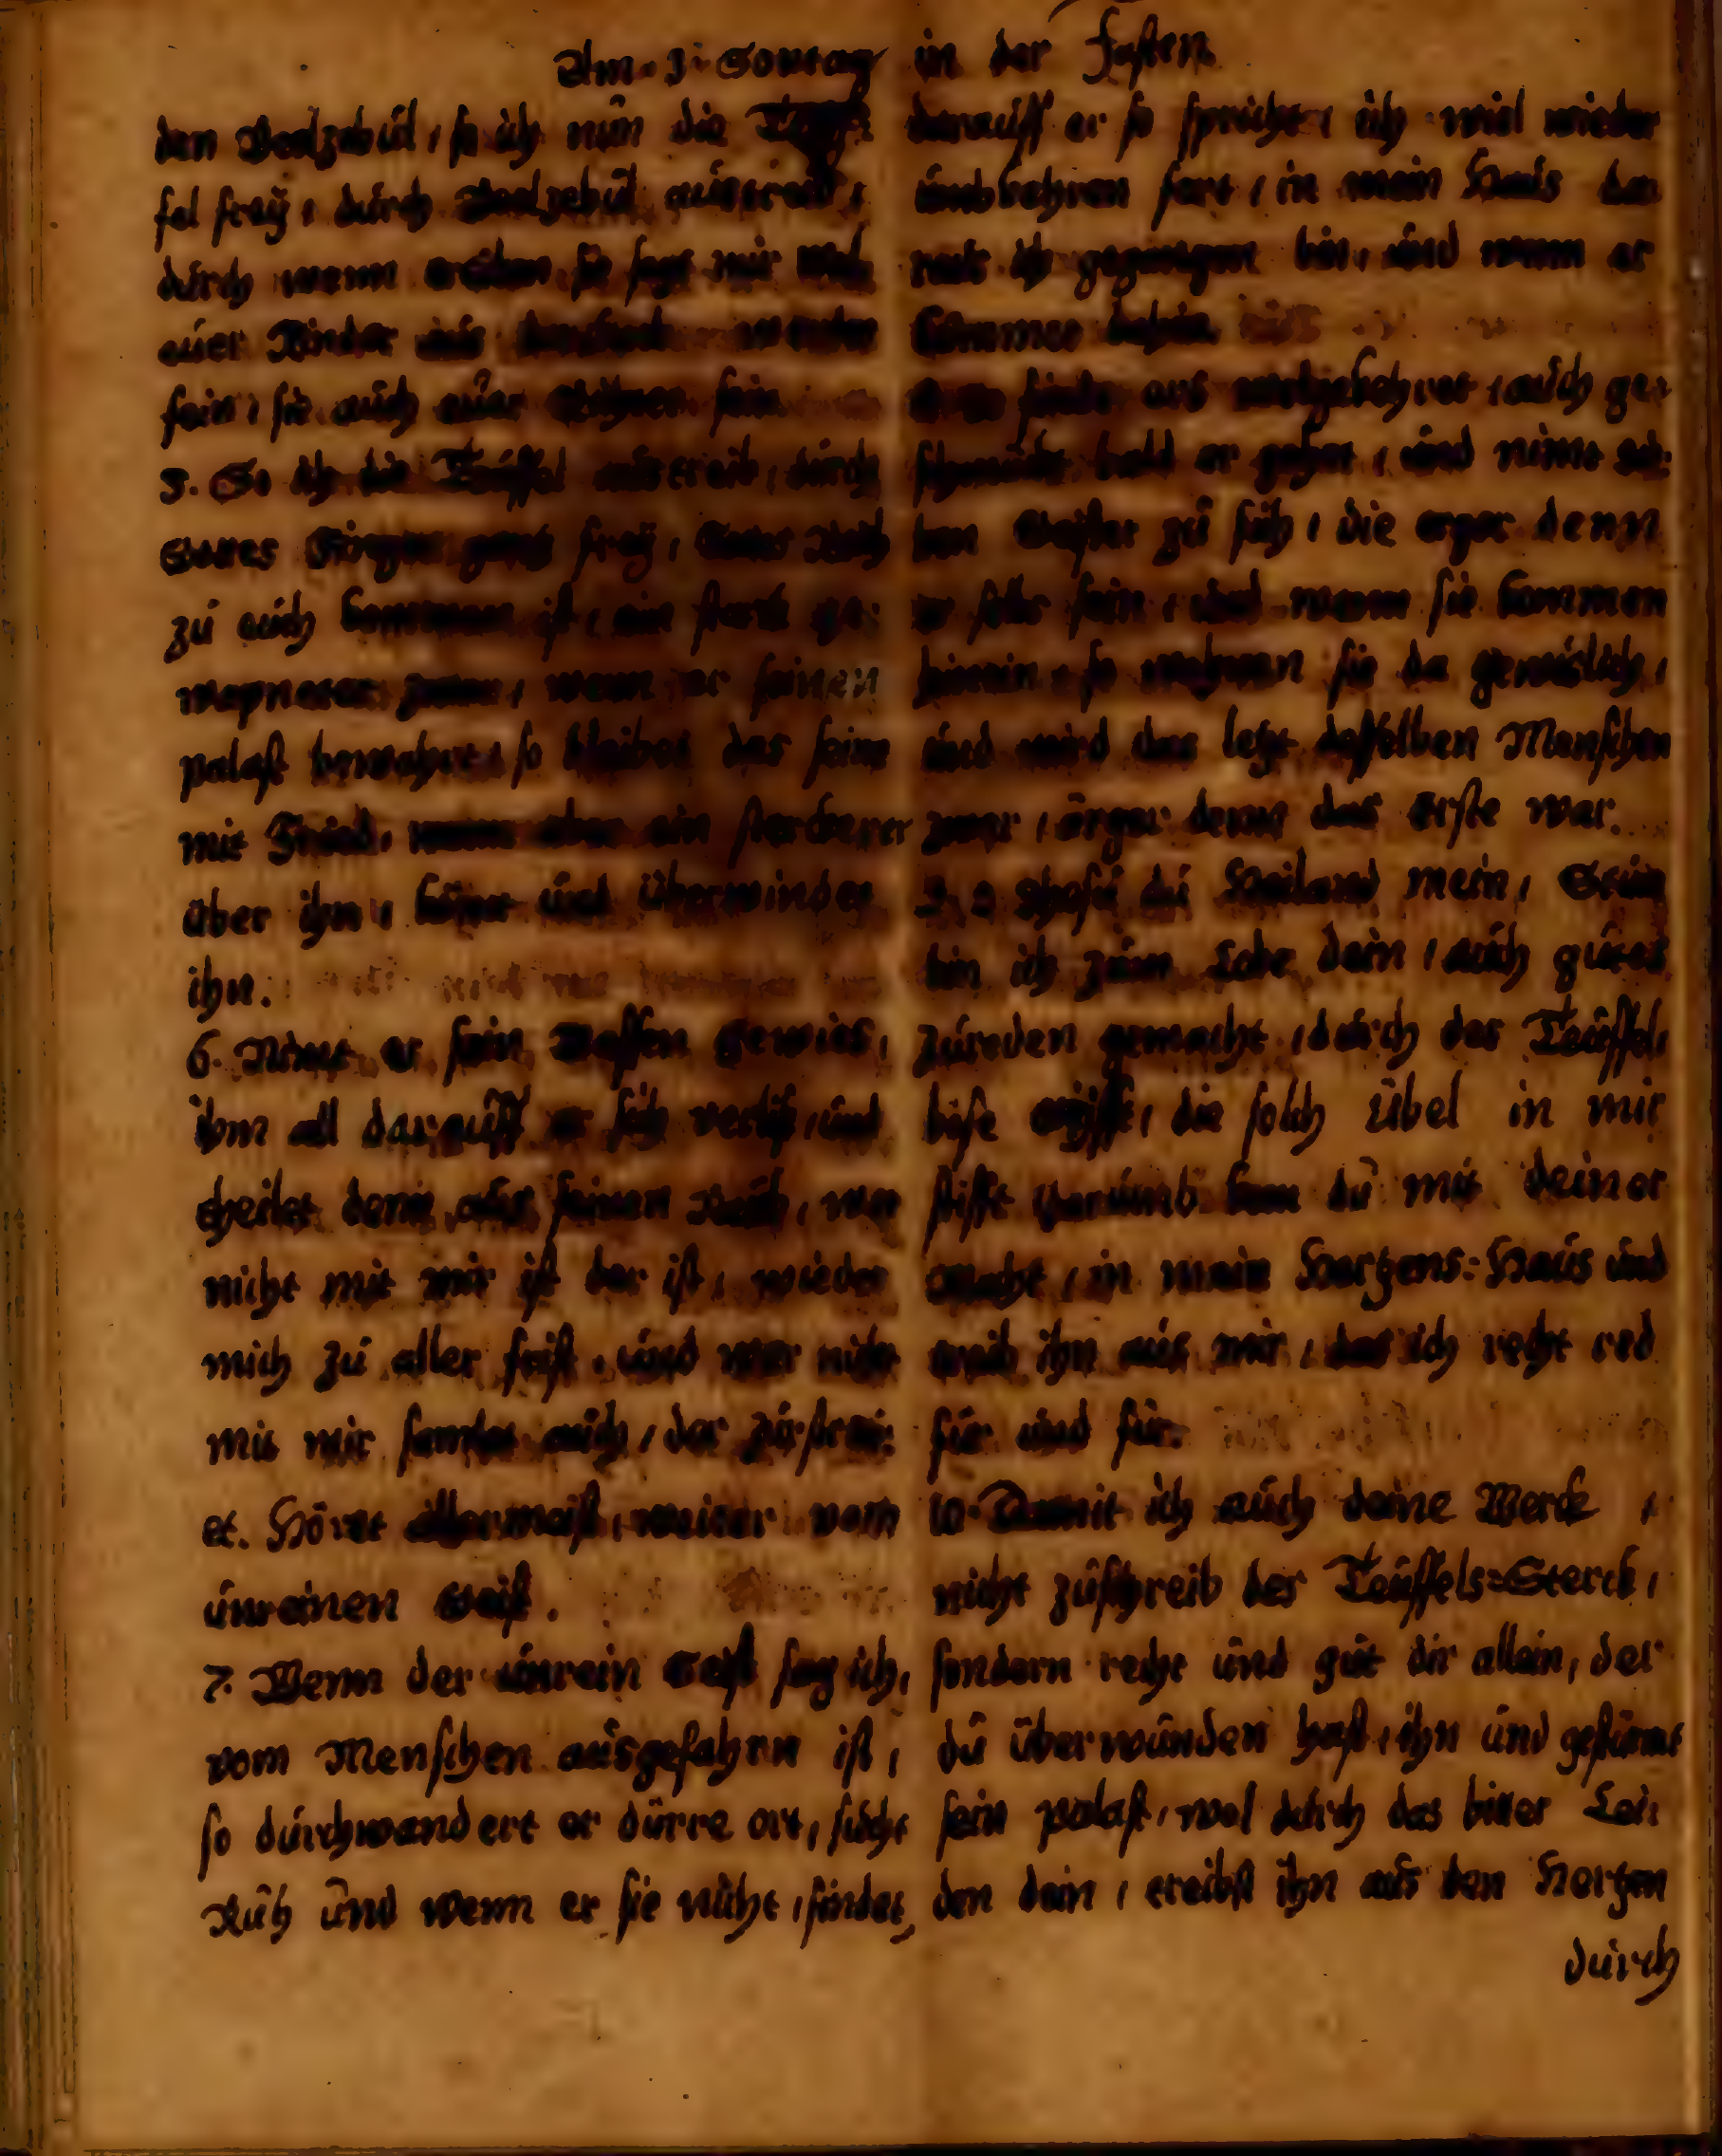 Am 3. Sontag in der Fasten
den Beelzebul, so ich nun die Teüf-
fel frey, durch Beelzebul austreib,
durch wem treiben sie sagt mir
euer Kinder aus werden
sein, sie auch euer Richter sein
5. So ich die Teuffel austreib, durch
Gottes Finger gantz frey, Gottes Reich
zu euch kommen ist, ein starck ge-
wapneter zwar, wenn er seinen
palast bewahret, so bleibet das seine
mit Fried, wenn aber ein starckerer
über ihn, kömt und überwindet
ihn.
6. Nimt er sein Waffen gewis,
ihm all darauff er sich verlies, und
theilet denn aus seinen Raub, wer
nicht mit mir ist der ist, wieder
mich zu aller frist, und wer nicht
mit mir samlet auch, der zurstrew-
et. Höret allermeist, weiter vom
unreinen Geist.
7. Wenn der unrein Geist sag ich,
vom Menschen ausgefahrn ist,
so durchwandert er dürre ort, sucht
Ruh und wenn er sie nicht, findet,
darauff er so spricht, ich wiel wieder
umbkehren fort, in mein Haus dar
raus ich gegangen bin, und wenn er
kömmet dahin
findt ers gekehret, auch ge-
schmückt bald er gehet, und nimt sie-
ben Geister zu sich, die erger denn
er selbr sein, und wenn sie kommen
hinein, so wohnen sie da gewislich,
und wird das letzt desselben Menschen
zwar, ärger denne das erste war.
O Jhesu du Heiland mein, Stum
bin ich zum Lobe dein, auch gutes
zureden gemacht, durch des Teuffels
böse gifft, die solch übel in mir
stifft darumb kom du mit deiner
Macht, in mein Hertzens-Haus und
treib ihn aus mir, das ich recht red
für und für.
10. Damit ich auch deine Werck,
nicht zuschreib des Teuffels-Sterck,
sondern recht und gut dir allein, der
du überwunden hast, ihn und gestürmt
sein palast, wol durch das bitter Lei-
den dein, treibst ihn aus den Hertzen
durch